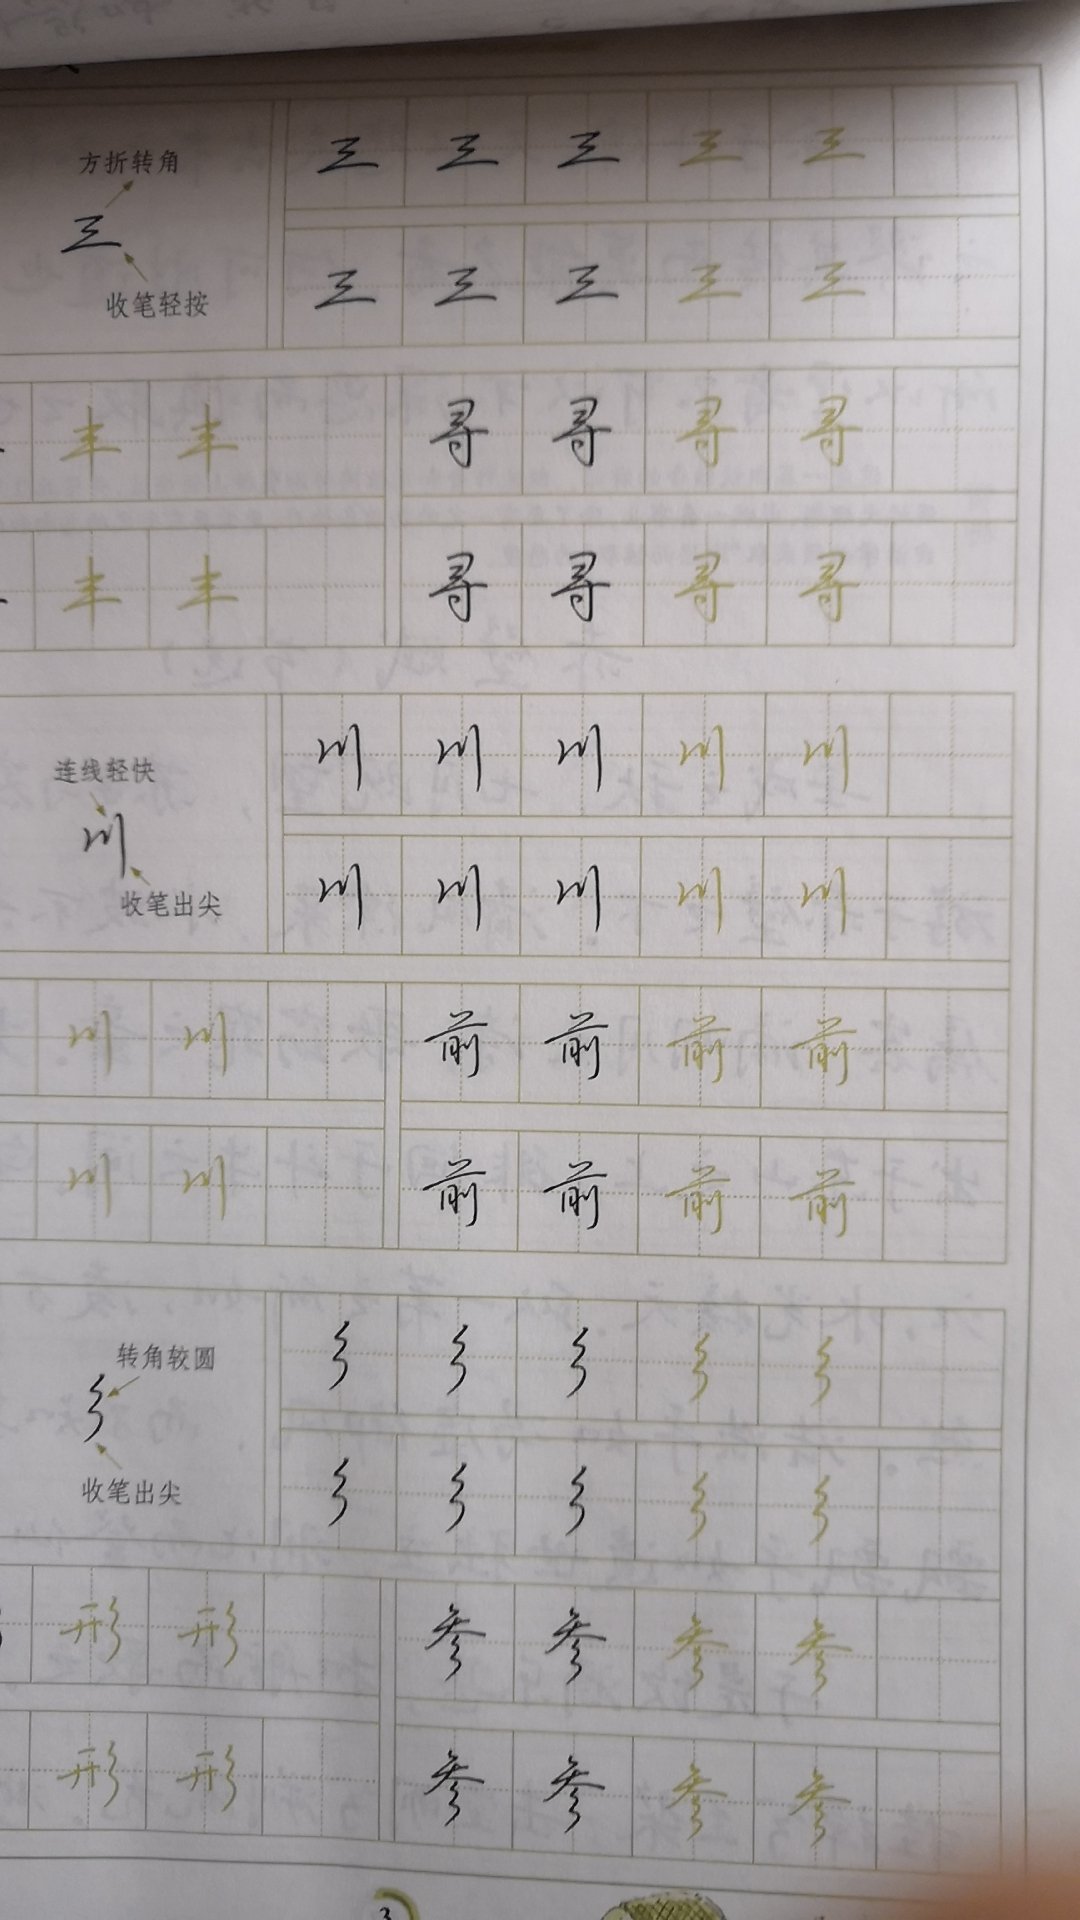 方折转角
三 三 三 三 三
三
收笔轻按
三 三 三 三 三
丰 丰 寻 寻 寻 寻
丰 丰 寻 寻 寻 寻
川 川 川 川 川
连线轻快
川
收笔出尖
川 川 川 川 川
川 川 前 前 前 前
川 川 前 前 前 前
彡 彡 彡 彡 彡
转角较圆
彡
收笔出尖
彡 彡 彡 彡 彡
形 形 参 参 参 参
形 形 参 参 参 参
3